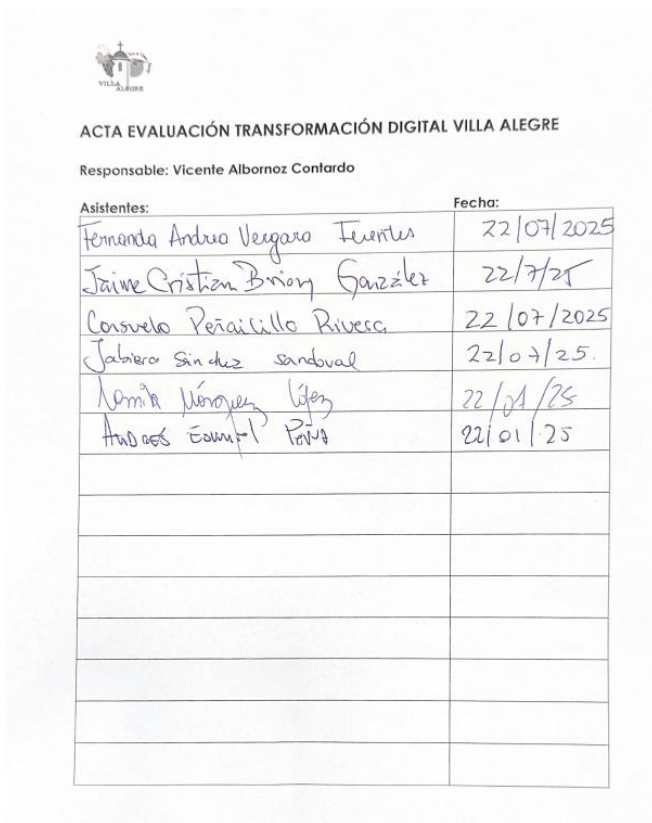 VILLA
ALEGRE
ACTA EVALUACIÓN TRANSFORMACIÓN DIGITAL VILLA ALEGRE
Responsable: Vicente Albornoz Contardo
Asistentes: Fecha:
Fernanda Andrea Vergara Fuentes 22/07/2025
Jaime Cristian González 22/7/25
Consuelo Peñailillo Rivera 22/07/2025
Sánchez sandoval 22/07/25.
Márquez López 22/ /25
Peña 22/01/25